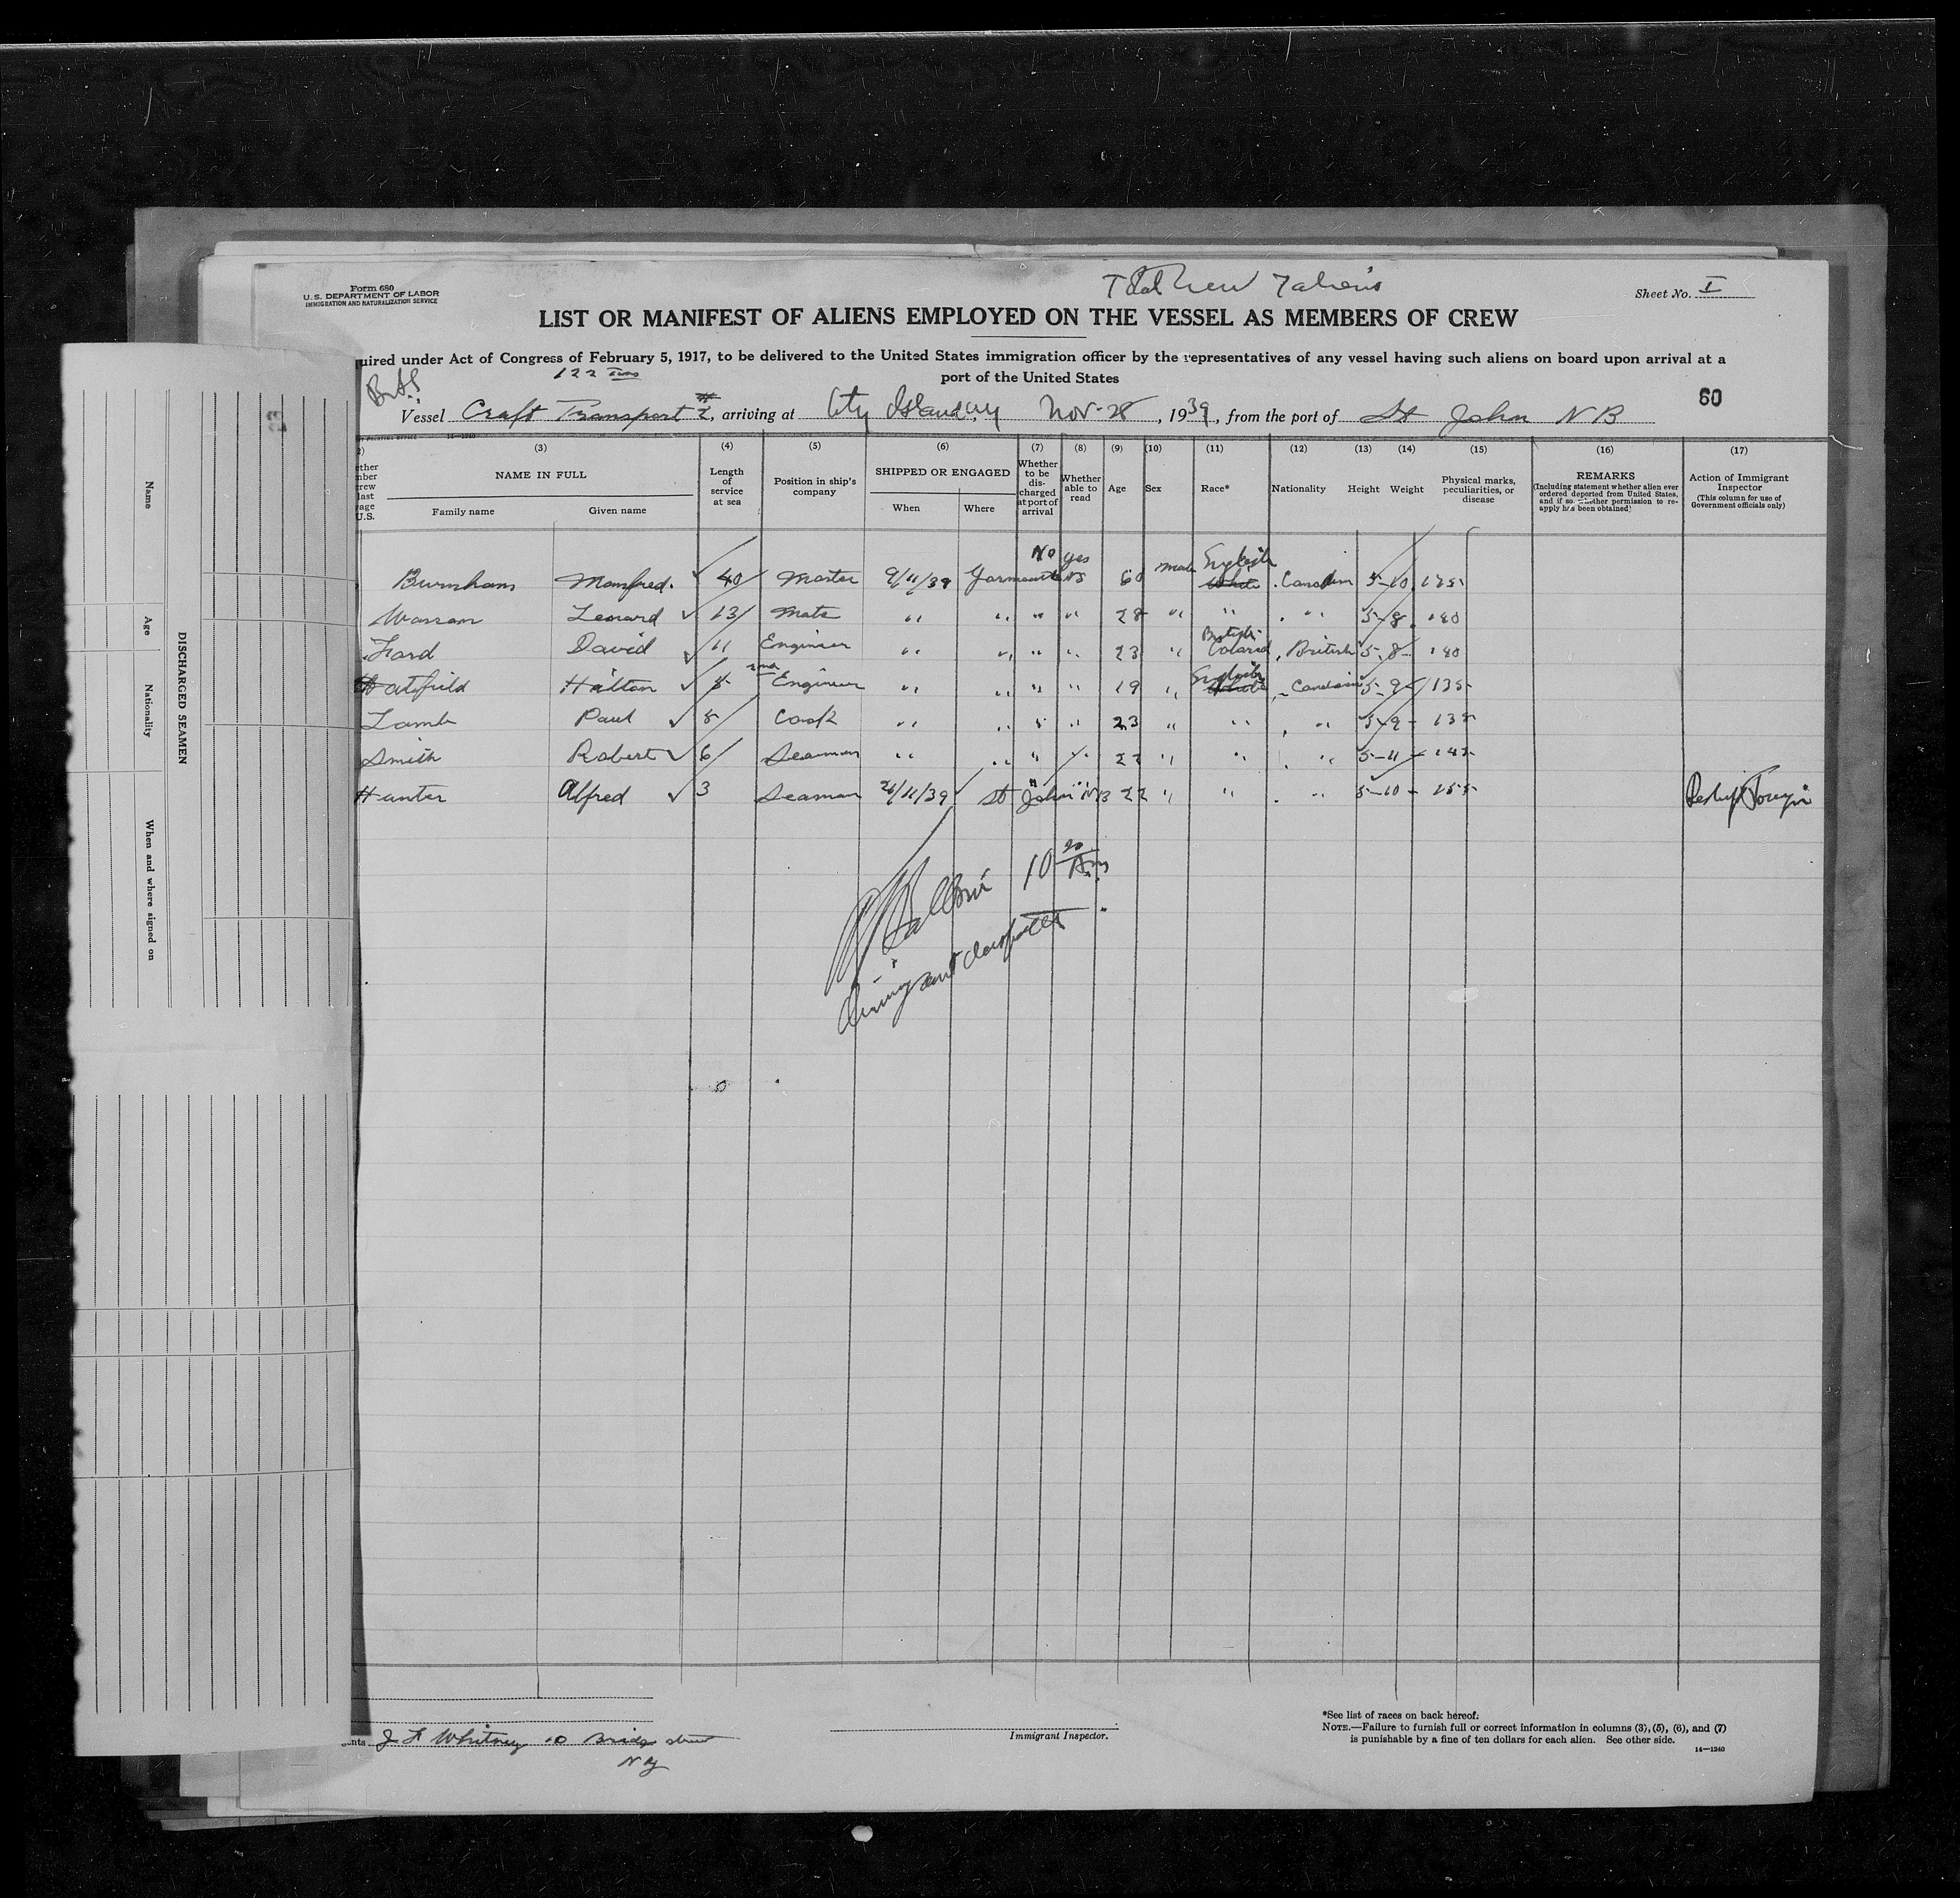 Form 680
U.S. DEPARTMENT OF LABOR
IMMIGRATION AND NATURALIZATION SERVICE
Total Crew 7 aliens
Sheet No. I
LIST OR MANIFEST OF ALIENS EMPLOYED ON THE VESSEL AS MEMBERS OF CREW
uired under Act of Congress of February 5, 1917, to be delivered to the United States immigration officer by the representatives of any vessel having such aliens on board upon arrival at a
port of the United States
122 Tons
60
Vessel Craft Transport #2, arriving at City Island, NY Nov-28, 1939, from the port of St John N B
(3) (4) (5) (6) (7) (8) (9) (10) (11) (12) (13) (14) (15) (16) (17)
NAME IN FULL
Family name Given name
Length of service at sea
Position in ship's company
SHIPPED OR ENGAGED
When Where
Whether to be discharged at port of arrival
Whether able to read
Age Sex Race* Nationality Height Weight
Physical marks, peculiarities, or disease
REMARKS
(Including statement whether alien ever ordered deported from United States, and if so whether permission to reapply has been obtained)
Action of Immigrant Inspector
(This column for use of Government officials only)
No yes English
Burnham Manfred. 40 Master 9/11/39 Yarmouth NS 60 male White Canadian 5-10
Lenard 13 Mate " " " " 28 " " " 5-8
British
Ford David 11 Engineer " " " " 23 " Colored British 5-8
2nd English
Hatfield Hilton Engineer " " " " 19 " White Canadian 5-9 135
Lamb Paul 8 Cook " " " " 23 " " " 5-9
Smith Robert 6 Seaman " " " " " " " 5-11
Hunter Alfred 3 Seaman 26/11/39 St John NB 22 " " " 5-10
10 20 Am
Immigrant
J F Whitney 10 Bridge street
N Y
Immigrant Inspector.
*See list of races on back hereof.
NOTE.—Failure to furnish full or correct information in columns (3), (5), (6), and (7)
is punishable by a fine of ten dollars for each alien. See other side.
14—1240
DISCHARGED SEAMEN
Name Age Nationality When and where signed on